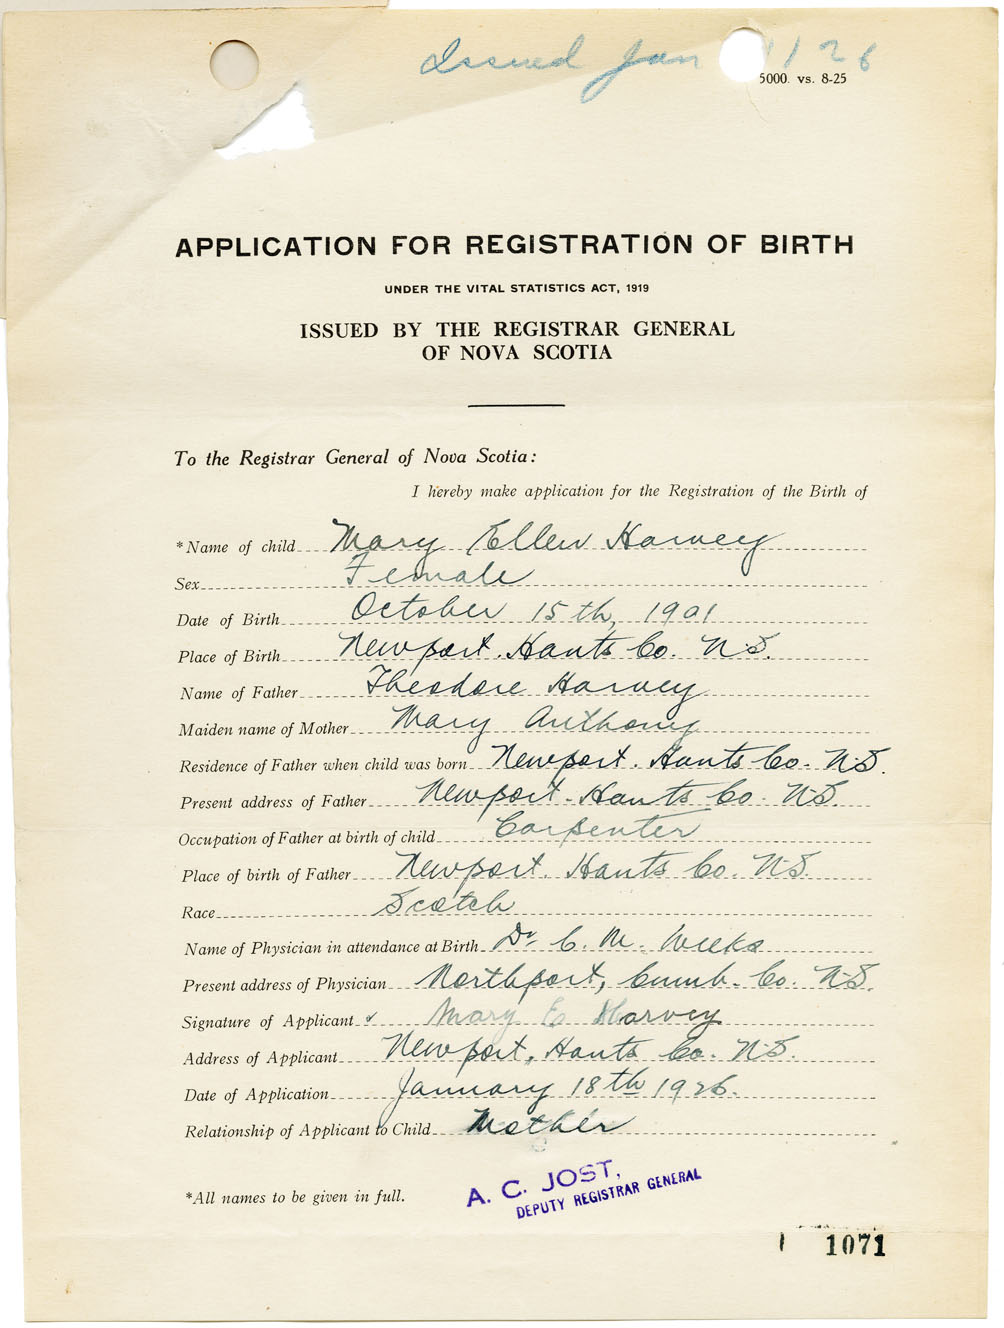 Issued Jan 1/26
5000. vs. 8-25
APPLICATION FOR REGISTRATION OF BIRTH
UNDER THE VITAL STATISTICS ACT, 1919
ISSUED BY THE REGISTRAR GENERAL
OF NOVA SCOTIA
To the Registrar General of Nova Scotia:
I hereby make application for the Registration of the Birth of
*Name of child Mary Ellen Harvey
Sex Female
Date of Birth October 15th, 1901
Place of Birth Newport. Hants Co. N.S.
Name of Father Theodore Harvey
Maiden name of Mother Mary Anthony
Residence of Father when child was born Newport. Hants Co. N.S.
Present address of Father Newport. Hants Co. N.S.
Occupation of Father at birth of child Carpenter
Place of birth of Father Newport. Hants Co. N.S.
Race Scotch
Name of Physician in attendance at Birth Dr C. M. Weeks
Present address of Physician Northport, Cumb. Co. N.S.
Signature of Applicant Mary E Harvey
Address of Applicant Newport, Hants Co. N.S.
Date of Application January 18th 1926.
Relationship of Applicant to Child Mother
*All names to be given in full.
A. C. JOST,
DEPUTY REGISTRAR GENERAL
1071